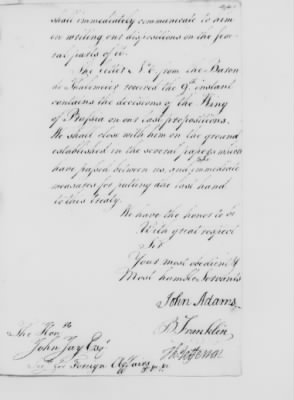 shall immediately communicate to him
on writing our dispositions on the seve-
ral parts of it.
The letter No. 6 from the Baron
de Thulemeier received the 9th instant
contains the decisions of the King
of Prussia on our last propositions.
We shall close with him on the ground
established in the several papers which
have passed between us, and immediate
measures for putting our last hand
to this treaty.
We have the honor to be
With great respect
Sir
Your most obedient &
Most humble Servants
John Adams
B Franklin
Th: Jefferson
The Honble
John Jay Esqr
Secy for Foreign Affairs